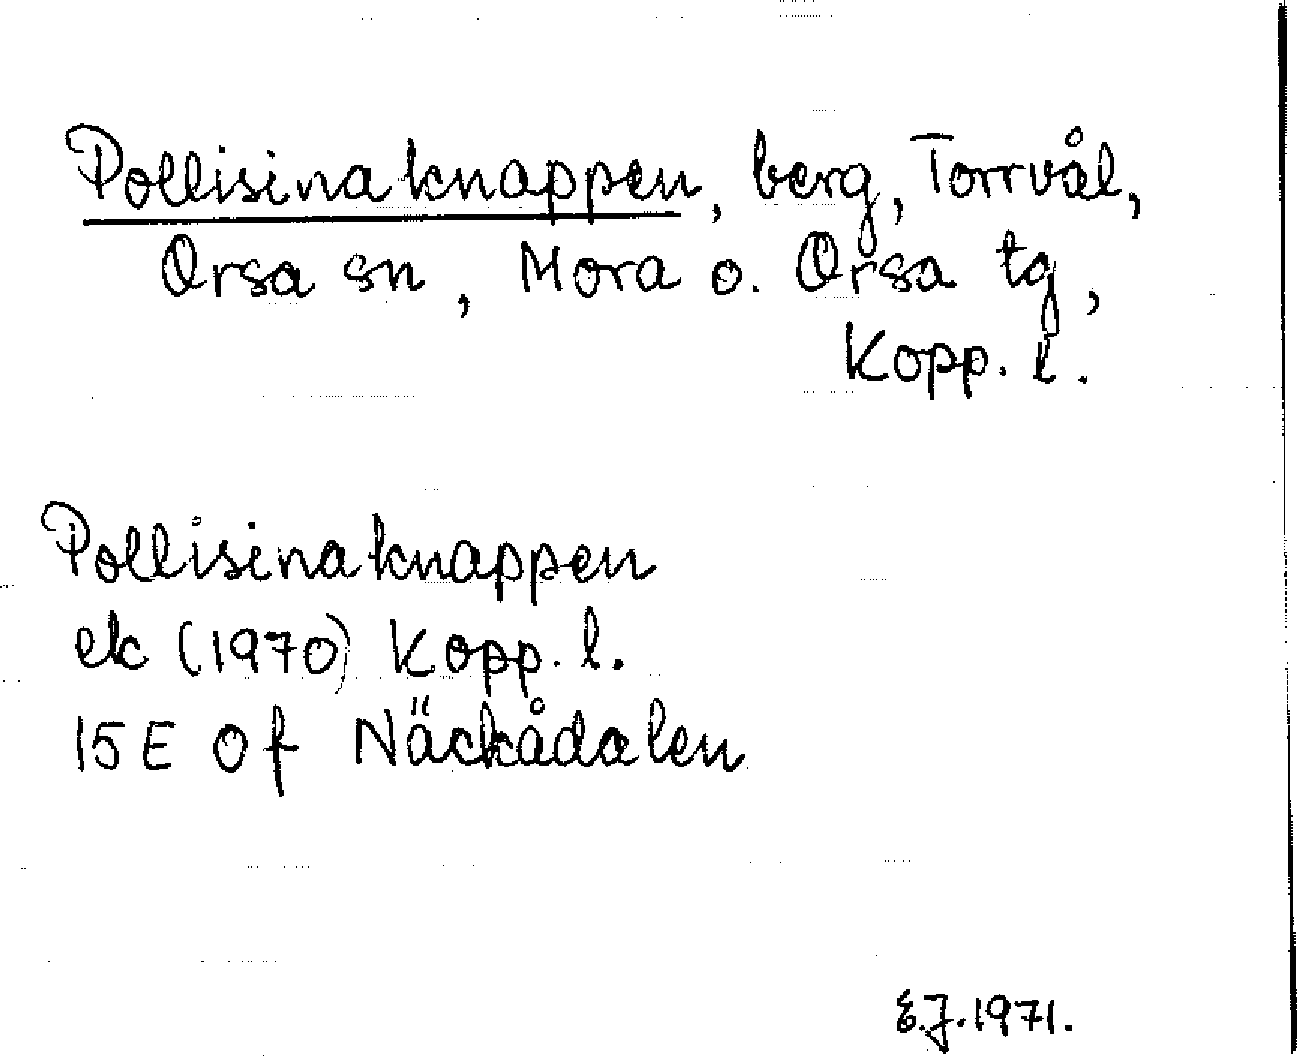 Pollisinaknappen, berg, Torrvål,
Orsa sn, Mora o. Orsa tg,
Kopp. l.
Pollisinaknappen
ek (1970) Kopp. l.
15E 0f Näckådalen
E.J. 1971.